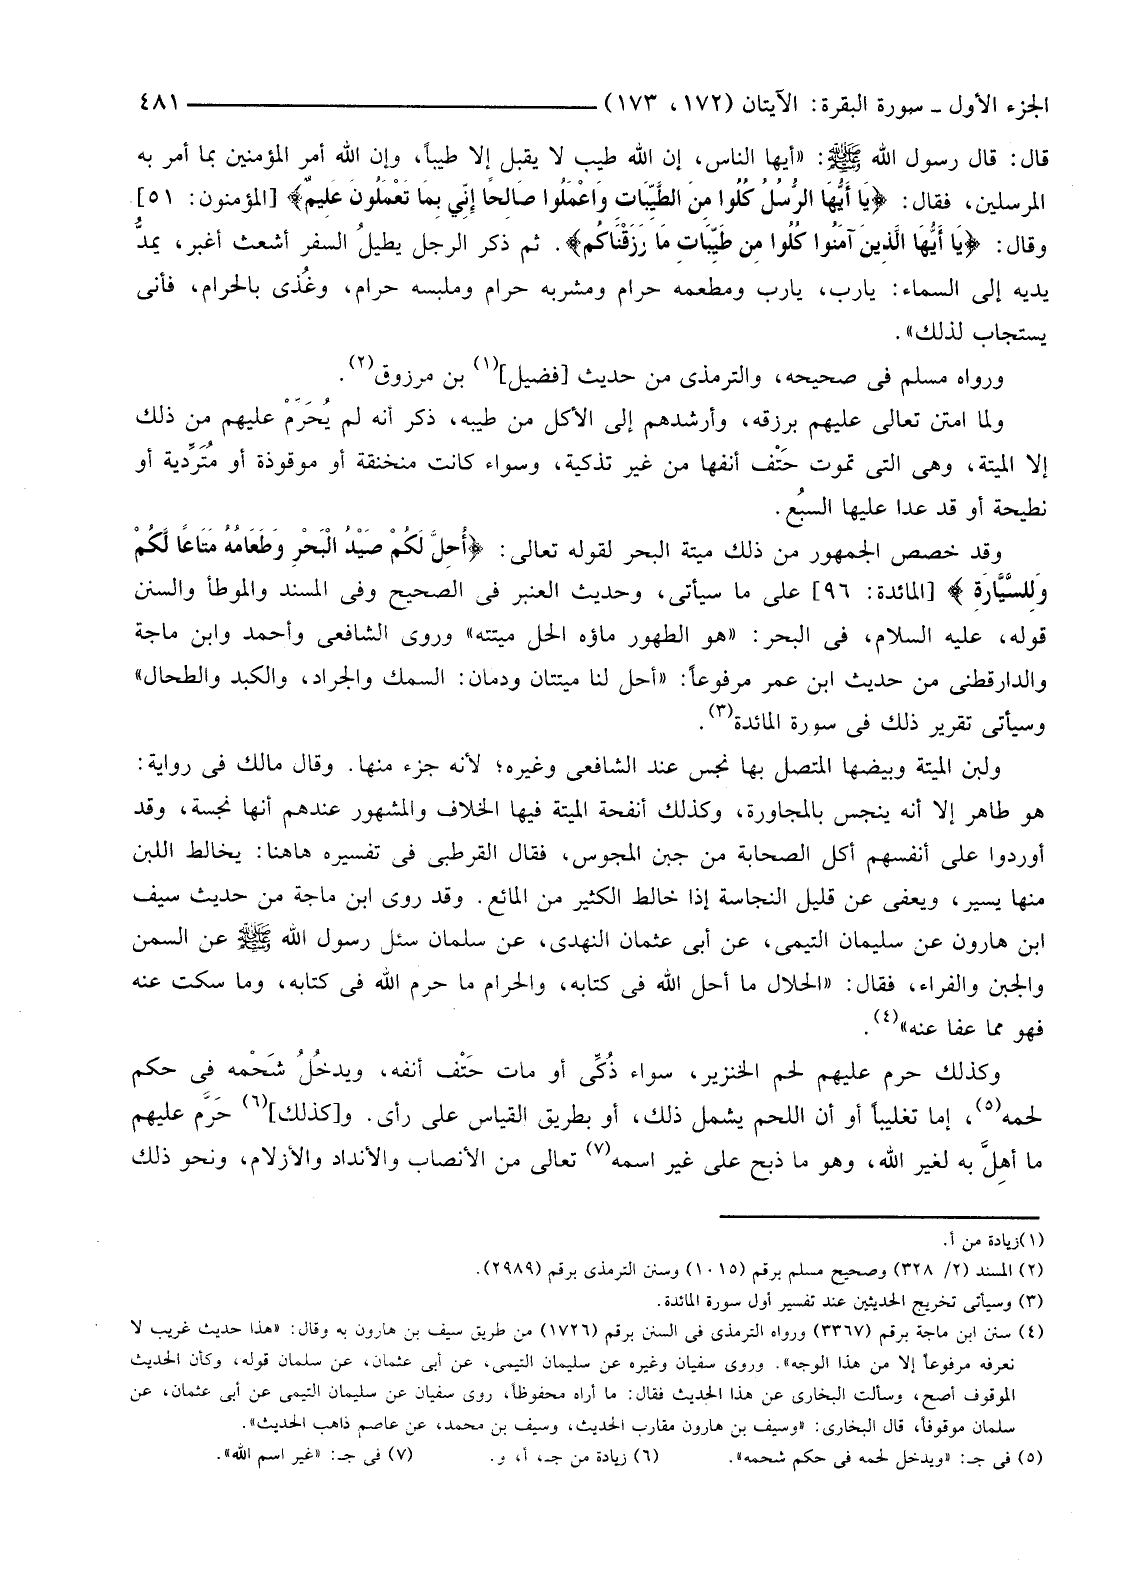 الجزء الأول ـ سورة البقرة: الآيتان (١٧٢، ١٧٣) ٤٨١
قال: قال رسول الله ﷺ: «أيها الناس، إن الله طيب لا يقبل إلا طيباً، وإن الله أمر المؤمنين بما أمر به
المرسلين، فقال: ﴿يَا أَيُّهَا الرُّسُلُ كُلُوا مِنَ الطَّيِّبَاتِ وَاعْمَلُوا صَالِحًا إِنِّي بِمَا تَعْمَلُونَ عَلِيمٌ﴾ [المؤمنون: ٥١]
وقال: ﴿يَا أَيُّهَا الَّذِينَ آمَنُوا كُلُوا مِن طَيِّبَاتِ مَا رَزَقْنَاكُم﴾. ثم ذكر الرجل يطيلُ السفر أشعث أغبر، يمدُّ
يديه إلى السماء: يارب، يارب ومطعمه حرام ومشربه حرام وملبسه حرام، وغُذى بالحرام، فأنى
يستجاب لذلك».
ورواه مسلم فى صحيحه، والترمذى من حديث [فضيل](١) بن مرزوق(٢).
ولما امتن تعالى عليهم برزقه، وأرشدهم إلى الأكل من طيبه، ذكر أنه لم يُحَرَمْ عليهم من ذلك
إلا الميتة، وهى التى تموت حَتْف أنفها من غير تذكية، وسواء كانت منخنقة أو موقوذة أو مُتَردِّية أو
نطيحة أو قد عدا عليها السبُع.
وقد خصص الجمهور من ذلك ميتة البحر لقوله تعالى: ﴿أُحِلَّ لَكُمْ صَيْدُ الْبَحْرِ وَطَعَامُهُ مَتَاعًا لَّكُمْ
وَلِلسَّيَّارَةِ ﴾ [المائدة: ٩٦] على ما سيأتى، وحديث العنبر فى الصحيح وفى المسند والموطأ والسنن
قوله، عليه السلام، فى البحر: «هو الطهور ماؤه الحل ميتته» وروى الشافعى وأحمد وابن ماجة
والدارقطنى من حديث ابن عمر مرفوعاً: «أحل لنا ميتتان ودمان: السمك والجراد، والكبد والطحال»
وسيأتى تقرير ذلك فى سورة المائدة(٣).
ولبن الميتة وبيضها المتصل بها نجس عند الشافعى وغيره؛ لأنه جزء منها. وقال مالك فى رواية:
هو طاهر إلا أنه ينجس بالمجاورة، وكذلك أنفحة الميتة فيها الخلاف والمشهور عندهم أنها نجسة، وقد
أوردوا على أنفسهم أكل الصحابة من جبن المجوس، فقال القرطبى فى تفسيره هاهنا: يخالط اللبن
منها يسير، ويعفى عن قليل النجاسة إذا خالط الكثير من المائع. وقد روى ابن ماجة من حديث سيف
ابن هارون عن سليمان التيمى، عن أبى عثمان النهدى، عن سلمان سئل رسول الله ﷺ عن السمن
والجبن والفراء، فقال: «الحلال ما أحل الله فى كتابه، والحرام ما حرم الله فى كتابه، وما سكت عنه
فهو مما عفا عنه»(٤).
وكذلك حرم عليهم لحم الخنزير، سواء ذُكِّى أو مات حَتْف أنفه، ويدخُلُ شَحْمه فى حكم
لحمه(٥)، إما تغليباً أو أن اللحم يشمل ذلك، أو بطريق القياس على رأى. و[كذلك](٦) حَرَّم عليهم
ما أهِلَّ به لغير الله، وهو ما ذبح على غير اسمه(٧) تعالى من الأنصاب والأنداد والأزلام، ونحو ذلك
(١)زيادة من أ.
(٢) المسند (٢/ ٣٢٨) وصحيح مسلم برقم (١٠١٥) وسنن الترمذى برقم (٢٩٨٩).
(٣) وسيأتى تخريج الحديثين عند تفسير أول سورة المائدة.
(٤) سنن ابن ماجة برقم (٣٣٦٧) ورواه الترمذى فى السنن برقم (١٧٢٦) من طريق سيف بن هارون به وقال: «هذا حديث غريب لا
نعرفه مرفوعاً إلا من هذا الوجه». وروى سفيان وغيره عن سليمان التيمى، عن أبى عثمان، عن سلمان قوله، وكأن الحديث
الموقوف أصح، وسألت البخارى عن هذا الحديث فقال: ما أراه محفوظاً، روى سفيان عن سليمان التيمى عن أبى عثمان، عن
سلمان موقوفاً، قال البخارى: «وسيف بن هارون مقارب الحديث، وسيف بن محمد، عن عاصم ذاهب الحديث».
(٥) فى جـ: «ويدخل لحمه فى حكم شحمه». (٦) زيادة من جـ، أ، و. (٧) فى جـ: «غير اسم الله».